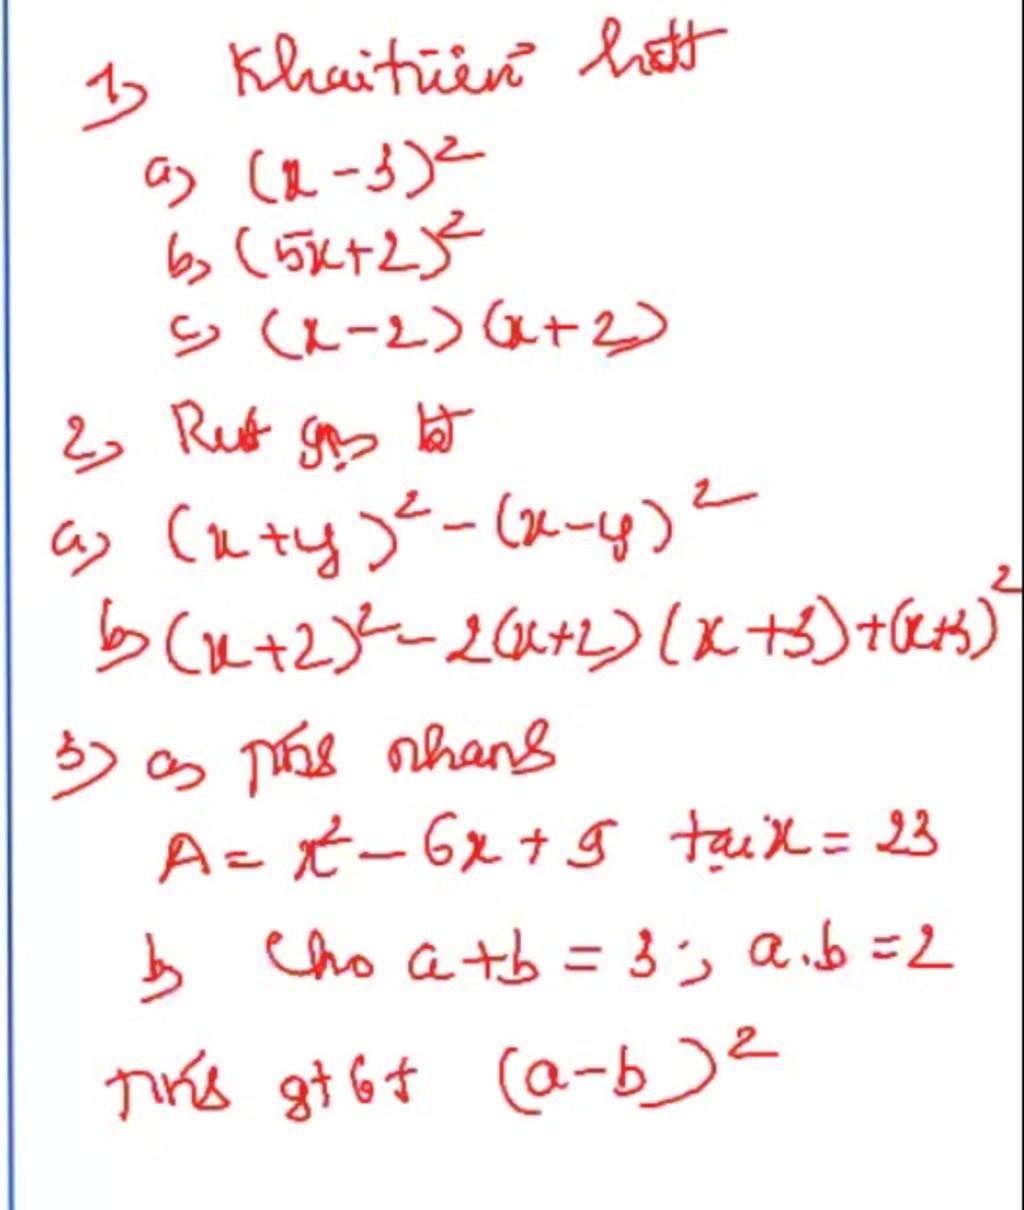 1) Khai triển hđt
a) (x-3)²
b) (5x+2)²
c) (x-2)(x+2)
2) Rút gọn bt
a) (x+y)² - (x-y)²
b) (x+2)² - 2(x+2)(x+3) + (x+3)²
3) a) Tính nhanh
A = x² - 6x + 9 tại x = 23
b) Cho a+b = 3; a.b = 2
Tính gt bt (a-b)²